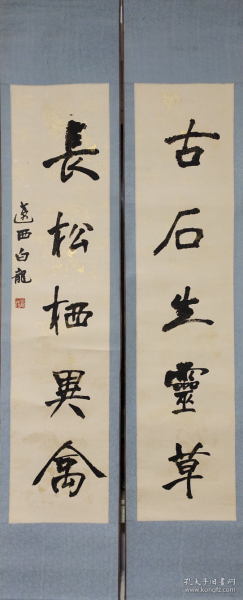 古石生靈草
長松栖異禽
遼西白龍
孔夫子旧书网
www.kongfz.com